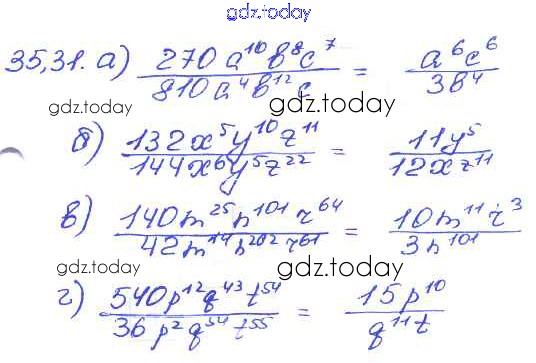 gdz.today
35.31. а) \frac{270 a^{10} b^8 c^7}{810 a^4 b^{12} c} = \frac{a^6 c^6}{3b^4}
gdz.today gdz.today
б) \frac{132x^5y^{10}z^{11}}{144x^6y^5z^{22}} = \frac{11y^5}{12xz^{11}}
в) \frac{140m^{25}n^{101}r^{64}}{42m^{14}n^{202}r^{61}} = \frac{10m^{11}r^3}{3n^{101}}
gdz.today gdz.today
г) \frac{540p^{12}q^{43}t^{54}}{36p^2q^{54}t^{55}} = \frac{15p^{10}}{q^{11}t}